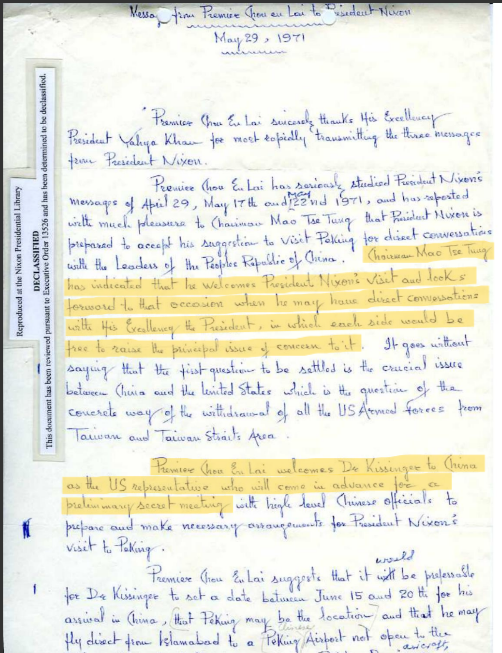 Message from Premier Chou en Lai to President Nixon
May 29, 1971
"Premier Chou En Lai sincerely thanks His Excellency
President Yahya Khan for most rapidly transmitting the three messages
from President Nixon.
Premier Chou En Lai has seriously studied President Nixon's
messages of April 29, May 17th and May 22nd 1971, and has reported
with much pleasure to Chairman Mao Tse Tung that President Nixon is
prepared to accept his suggestion to visit Peking for direct conversations
with the Leaders of the Peoples Republic of China. Chairman Mao Tse Tung
has indicated that he welcomes President Nixon's visit and looks
forward to that occasion when he may have direct conversations
with His Excellency the President, in which each side would be
free to raise the principal issue of concern to it. It goes without
saying that the first question to be settled is the crucial issue
between China and the United States which is the question of the
concrete way of the withdrawal of all the US Armed Forces from
Taiwan and Taiwan Straits Area.
Premier Chou En Lai welcomes Dr Kissinger to China
as the US representative who will come in advance for a
preliminary secret meeting with high level Chinese officials to
prepare and make necessary arrangements for President Nixon's
visit to Peking.
Premier Chou En Lai suggests that it would be preferable
for Dr Kissinger to set a date between June 15 and 20th for his
arrival in China, that Peking may be the location and that he may
fly direct from Islamabad to a Peking Airport not open to the
Reproduced at the Nixon Presidential Library
DECLASSIFIED
This document has been reviewed pursuant to Executive Order 13526 and has been determined to be declassified.